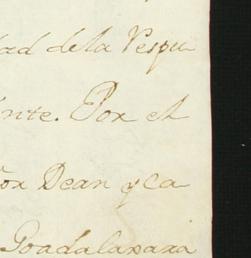 dad de la Respu
inte. Por el
or Dean y ca
Guadalaxara